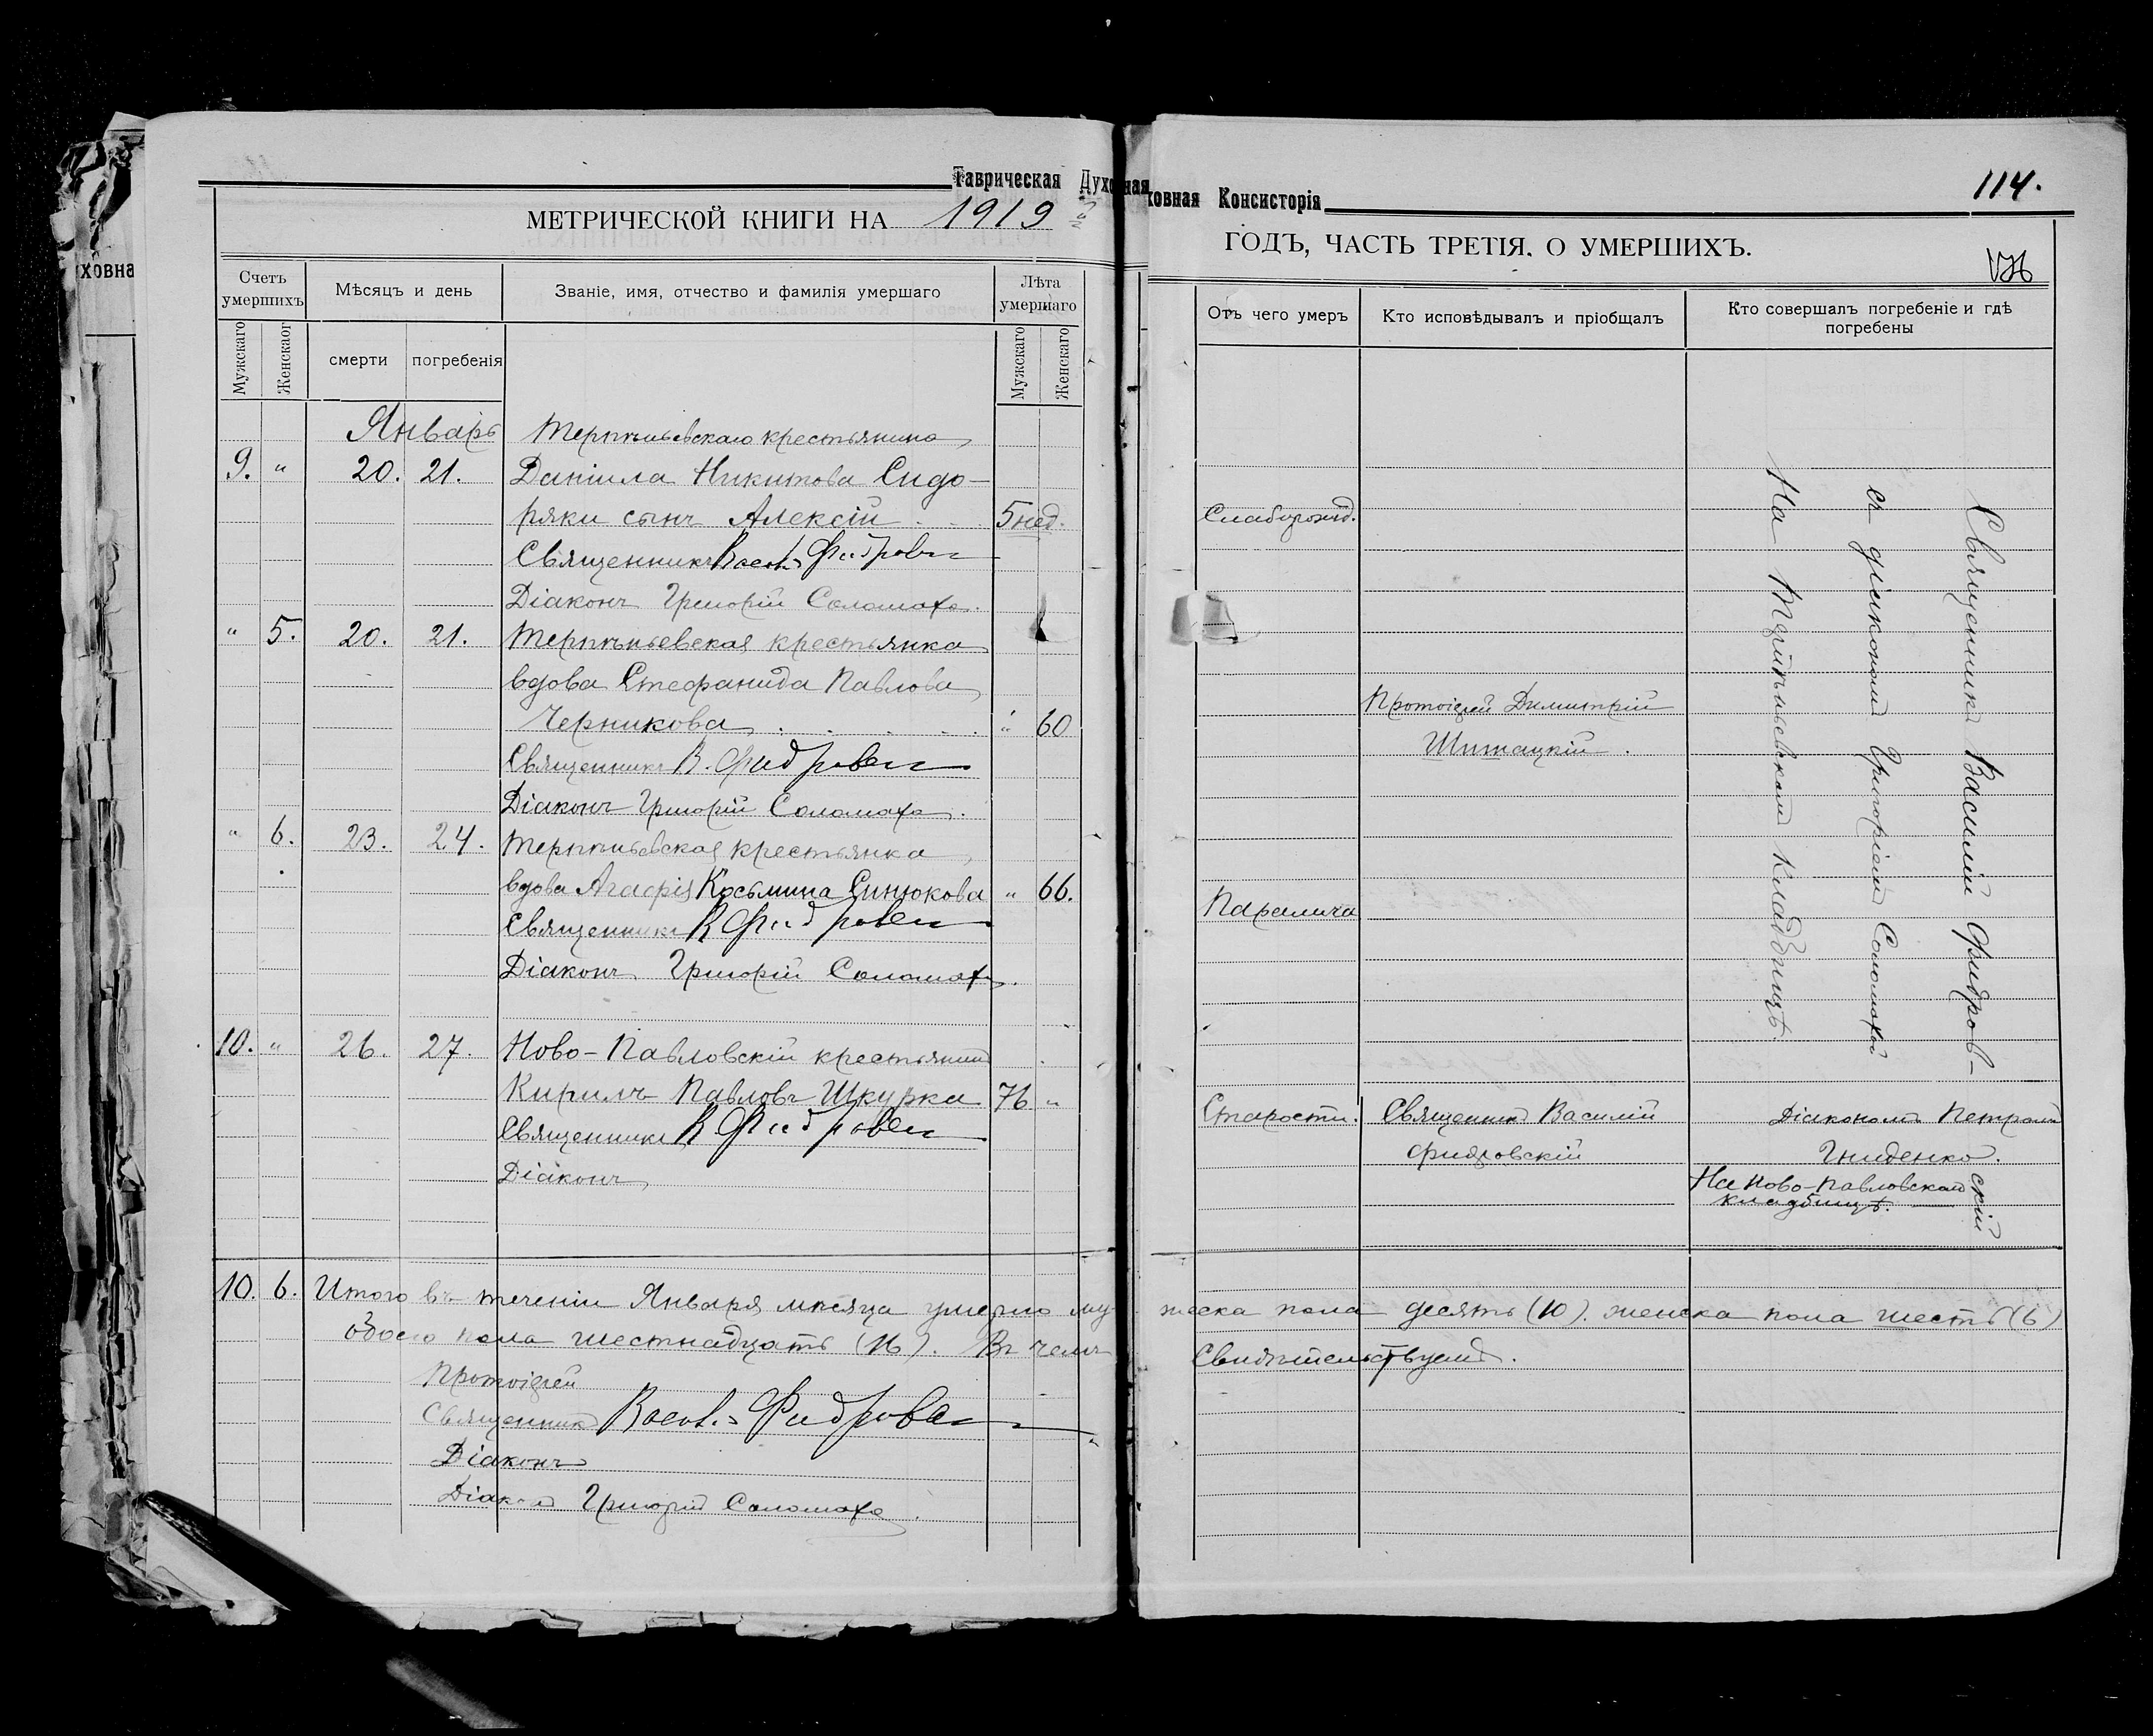 Таврическая Духовная Консисторія
114.
МЕТРИЧЕСКОЙ КНИГИ НА 1919
ГОДЪ, ЧАСТЬ ТРЕТІЯ, О УМЕРШИХЪ.
Счетъ умершихъ
Мѣсяцъ и день
Званіе, имя, отчество и фамилія умершаго
Лѣта умершаго
Мужскаго
Женскаго
смерти
погребенія
Мужскаго
Женскаго
Январь
Терпѣньевскаго крестьянина
9. " 20. 21. Даніила Никитова Сидо-
ряки сынъ Алексій 5 нед.
Священникъ Васил Фидровс
Діаконъ Григорій Соломаха.
" 5. 20. 21. Терпѣньевская крестьянка
вдова Стефанида Павлова
Черникова " 60
Священникъ В. Фидровс
Діаконъ Григорій Соломаха.
" 6. 23. 24. Терпѣньевская крестьянка
вдова Агафія Косьмина Синюкова " 66.
Священникъ В Фидровс
Діаконъ Григорій Соломаха.
10. " 26. 27. Ново-Павловскій крестьянинъ
Кирилъ Павловъ Шкурка 76 "
Священникъ В Фидровс
Діаконъ
10. 6. Итого въ теченіи Января мѣсяца умерло му-
обоего пола шестнадцать (16). Въ чемъ
Протоіерей
Священникъ Васил Фидровс
Діаконъ
Діаконъ Григорій Соломаха
Отъ чего умеръ
Кто исповѣдывалъ и пріобщалъ
Кто совершалъ погребеніе и гдѣ погребены
Слаборожд.
Протоіерей Димитрій
Шитацкій.
Паралича
Старости.
Священникъ Василій
Фидровскій
Священникъ Василій Фидров-
скій
съ діакономъ Григоріемъ Соломахой
На Терпѣньевскомъ кладбищѣ.
Діакономъ Петромъ
Гниденко.
На Ново-Павловскомъ
кладбищѣ.
жеска пола десять (10). женска пола шесть (6)
Свидѣтельствуемъ.